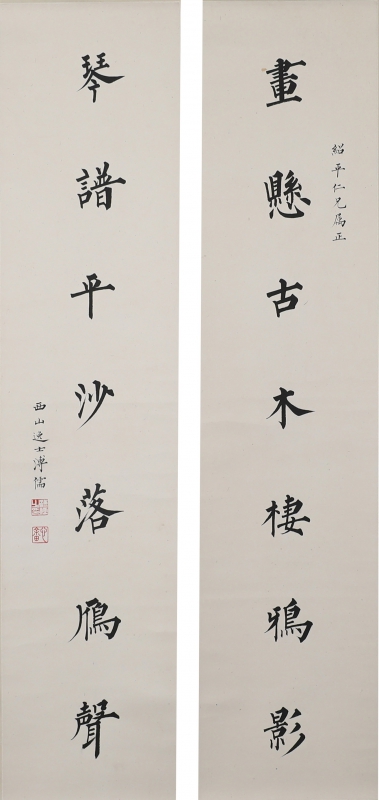 畫懸古木棲鴉影
紹平仁兄属正
琴譜平沙落鴈聲
西山逸士溥儒